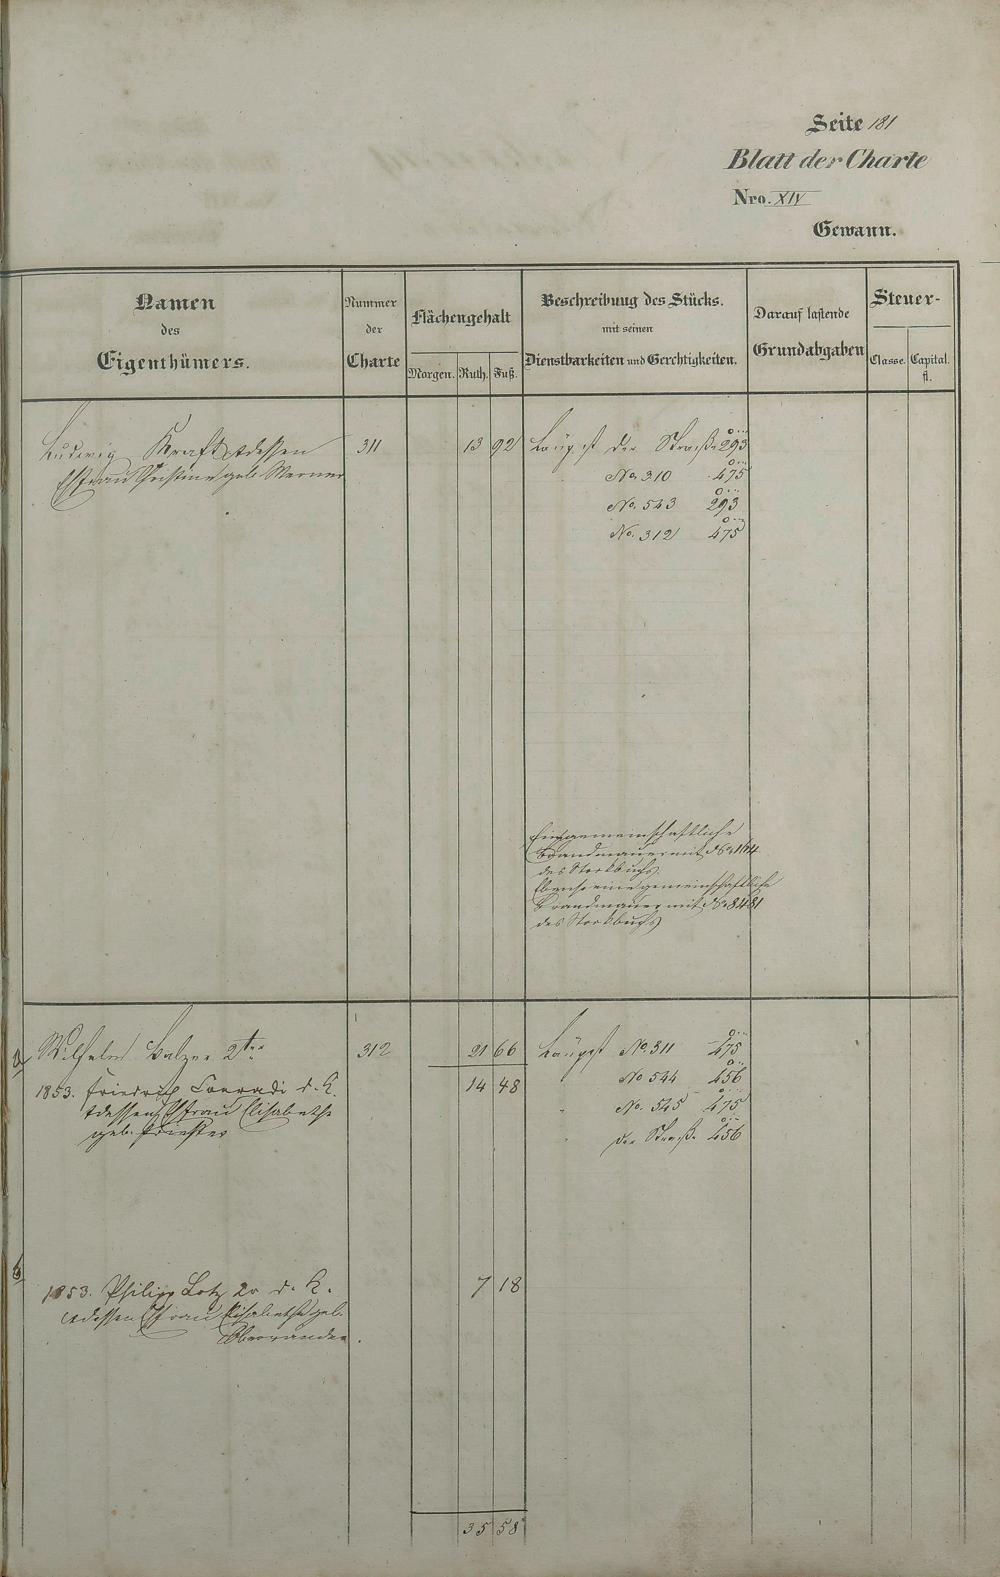 Seite 181
Blatt der Charte
Nro. XIV
Gewann.
Namen
des
Eigenthümers.
Nummer
der
Charte
Flächengehalt
Morgen. Ruth. Fuß.
Beschreibung des Stücks.
mit seinen
Dienstbarkeiten und Gerechtigkeiten.
Darauf lastende
Grundabgaben
Steuer-
Classe. Capital.
fl.
Ludwig Kraft u dessen 311 13 92 Längst der Straße 293
Ehfrau Christine geb. Werner No. 310 475
No. 543 293
No. 312 475
Eine gemeinschaftliche
Brandmauer mit No
des Stockbuchs.
Ebenso eine gemeinschaftliche
Brandmauer mit No
des Stockbuchs
a) Wilhelm Balzer 2ter 312 21 66 Längst No. 311 475
1853. Friedrich Conradi d. K. 14 48 " No 544 456
u dessen Ehfrau Elisabethe " No. 545 475
geb. " der Straße 456
b) 1853. Philipp Lotz 2r d. K. 7 18
u dessen Ehfrau Elisabethe geb.
35 58